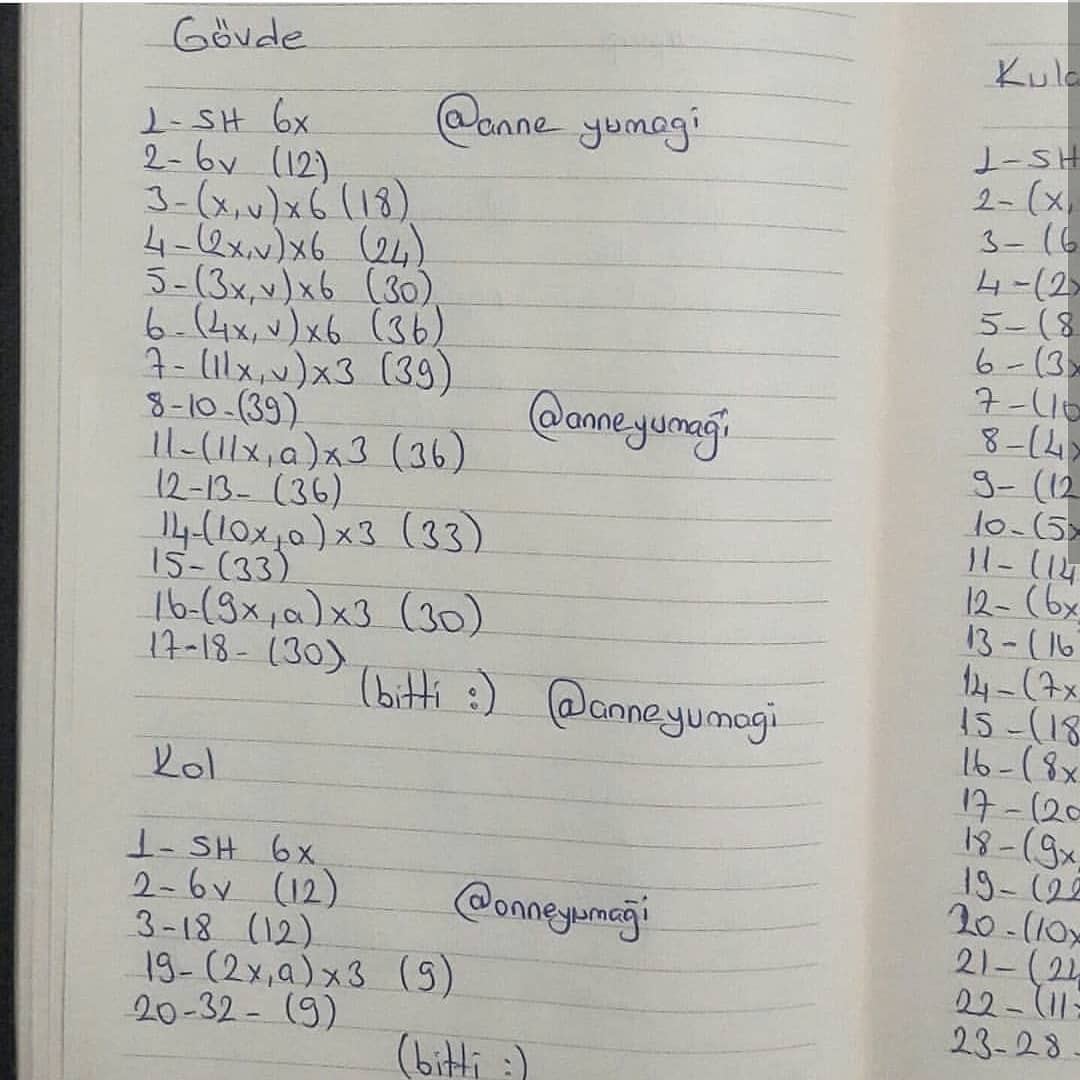 Gövde
1- SH 6x
@anne yumagi
2- 6v (12)
3-(x,v)x6 (18)
4-(2x,v)x6 (24)
5-(3x,v)x6 (30)
6-(4x,v)x6 (36)
7-(11x,v)x3 (39)
8-10-(39)
@anneyumaği
11-(11x,a)x3 (36)
12-13- (36)
14-(10x,a)x3 (33)
15-(33)
16-(9x,a)x3 (30)
17-18- (30)
(bitti :)
@anneyumagi
Kol
1- SH 6x
2- 6v (12)
@anneyumaği
3-18 (12)
19-(2x,a)x3 (9)
20-32- (9)
(bitti :)
1-SH
2-(x,
3-(6
4-(2x
5-(8
6-(3x
7-(10
8-(4x
9-(12
10-(5x
11-(14
12-(6x
13-(16
14-(7x
15-(18
16-(8x
17-(20
18-(9x
19-(22
20-(10x
21-(24
22-(11x
23-28-